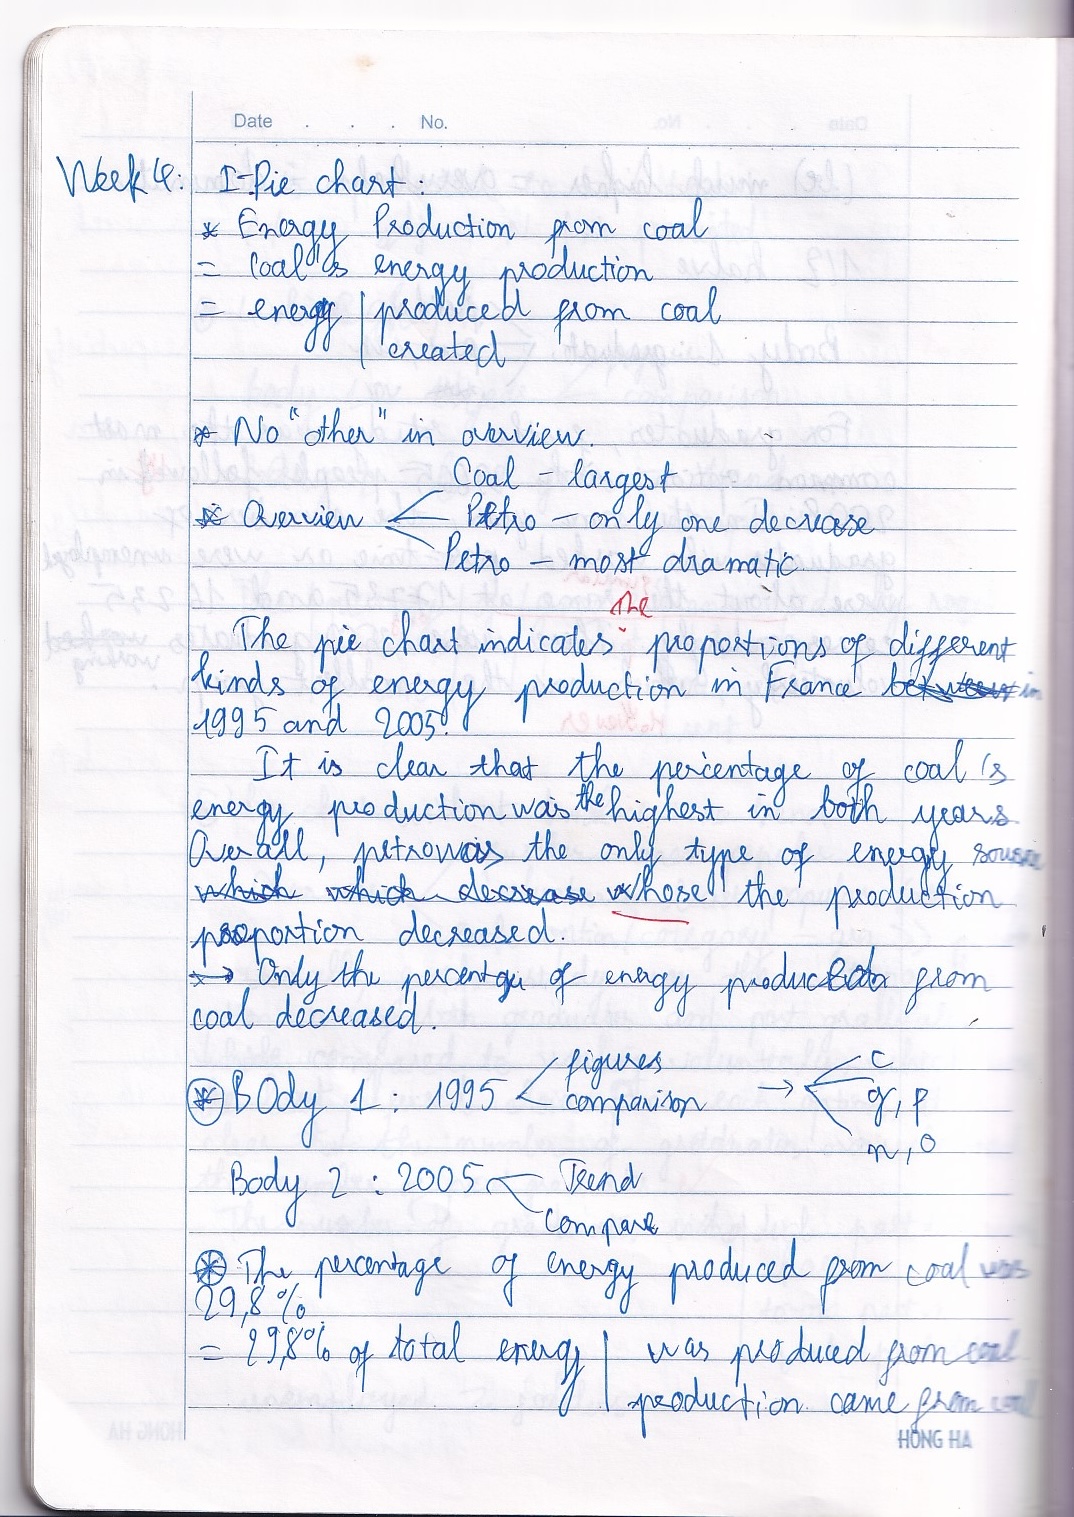 Date . . . No.
Week 4: I-Pie chart:
* Energy Production from coal
= Coal's energy production
= energy | produced from coal
created
* No "other" in overview.
Coal - largest
* Overview Petro - only one decrease
Petro - most dramatic
the
The pie chart indicates proportions of different
kinds of energy production in France between in
1995 and 2005.
It is clear that the percentage of coal's
energy production was the highest in both years.
Overall, petro was the only type of energy source
which which decrease whose the production
proportion decreased.
→ Only the percentage of energy produced from
coal decreased.
* BOdy 1: 1995 figures → c
comparison g, p
n, o
Body 2: 2005 Trend
compare
* The percentage of energy produced from coal was
29,8%.
= 29,8% of total energy | was produced from coal
production came from coal
HỒNG HÀ